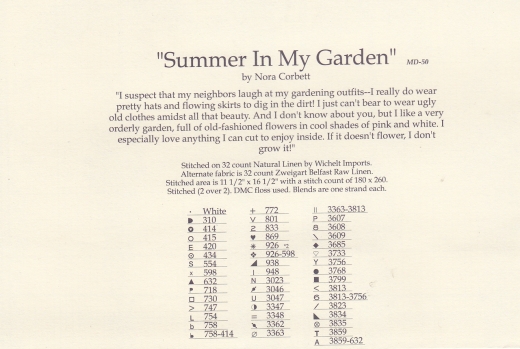 "Summer In My Garden" MD-50
by Nora Corbett
"I suspect that my neighbors laugh at my gardening outfits--I really do wear
pretty hats and flowing skirts to dig in the dirt! I just can't bear to wear ugly
old clothes amidst all that beauty. And I don't know about you, but I like a very
orderly garden, full of old-fashioned flowers in cool shades of pink and white. I
especially love anything I can cut to enjoy inside. If it doesn't flower, I don't
grow it!"
Stitched on 32 count Natural Linen by Wichelt Imports.
Alternate fabric is 32 count Zweigart Belfast Raw Linen.
Stitched area is 11 1/2" x 16 1/2" with a stitch count of 180 x 260.
Stitched (2 over 2). DMC floss used. Blends are one strand each.
· White
310
414
O 415
E 420
434
S 554
x 598
▲ 632
P 718
□ 730
> 747
L 754
b 758
758-414
+ 772
V 801
2 833
♥ 869
✳ 926
❖ 926-598
◢ 938
I 948
N 3023
3046
U 3047
◑ 3347
= 3348
3362
∅ 3363
|| 3363-3813
P 3607
8 3608
\ 3609
◆ 3685
♡ 3733
Y 3756
● 3768
■ 3799
< 3813
6 3813-3756
/ 3823
◣ 3834
⊗ 3835
T 3859
A 3859-632